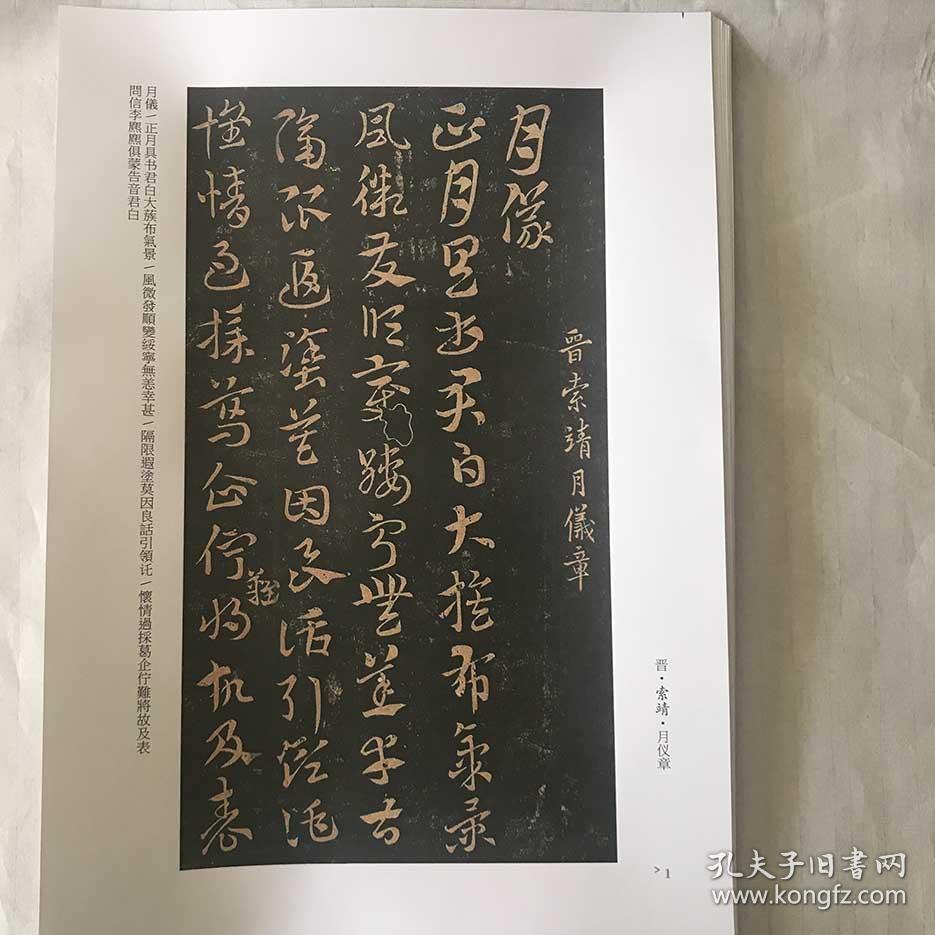 晋·索靖·月仪章
晋索靖月儀章
月儀
正月具书君白大蔟布氣景
風微發順變綏寧無恙幸甚
隔限遐塗莫因良話引領託
懷情過採葛企佇難將故及表
月儀/正月具书君白大蔟布氣景/風微發順變綏寧無恙幸甚/隔限遐塗莫因良話引領讬/懷情過採葛企佇難將故及表
問信李麃麃俱蒙告音君白
>1
孔夫子旧书网
www.kongfz.com